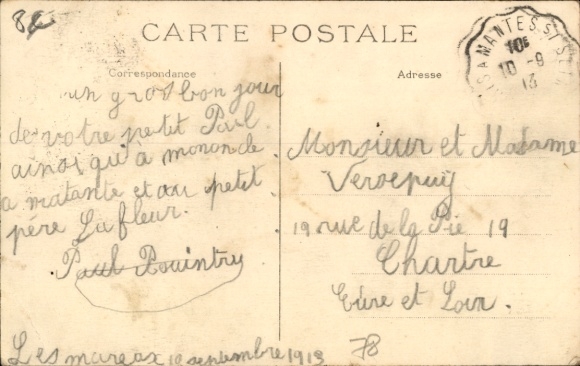 82
CARTE POSTALE
Correspondance
un gros bon jour
de votre petit Paul
ainsi qu'à mononcle
a matante et au petit
père Lafleur.
Paul
Les mureaux 10 septembre 1913
Adresse
Monsieur et Madame
19 rue de la Pie 19
Chartre
Eure et Loir.
78
MANTES
10E
10-9
13